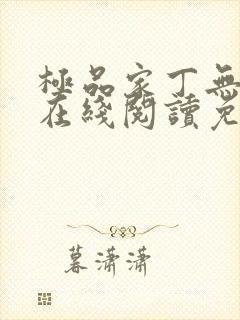 極品家丁無
在綫閱讀免
暮瀟瀟